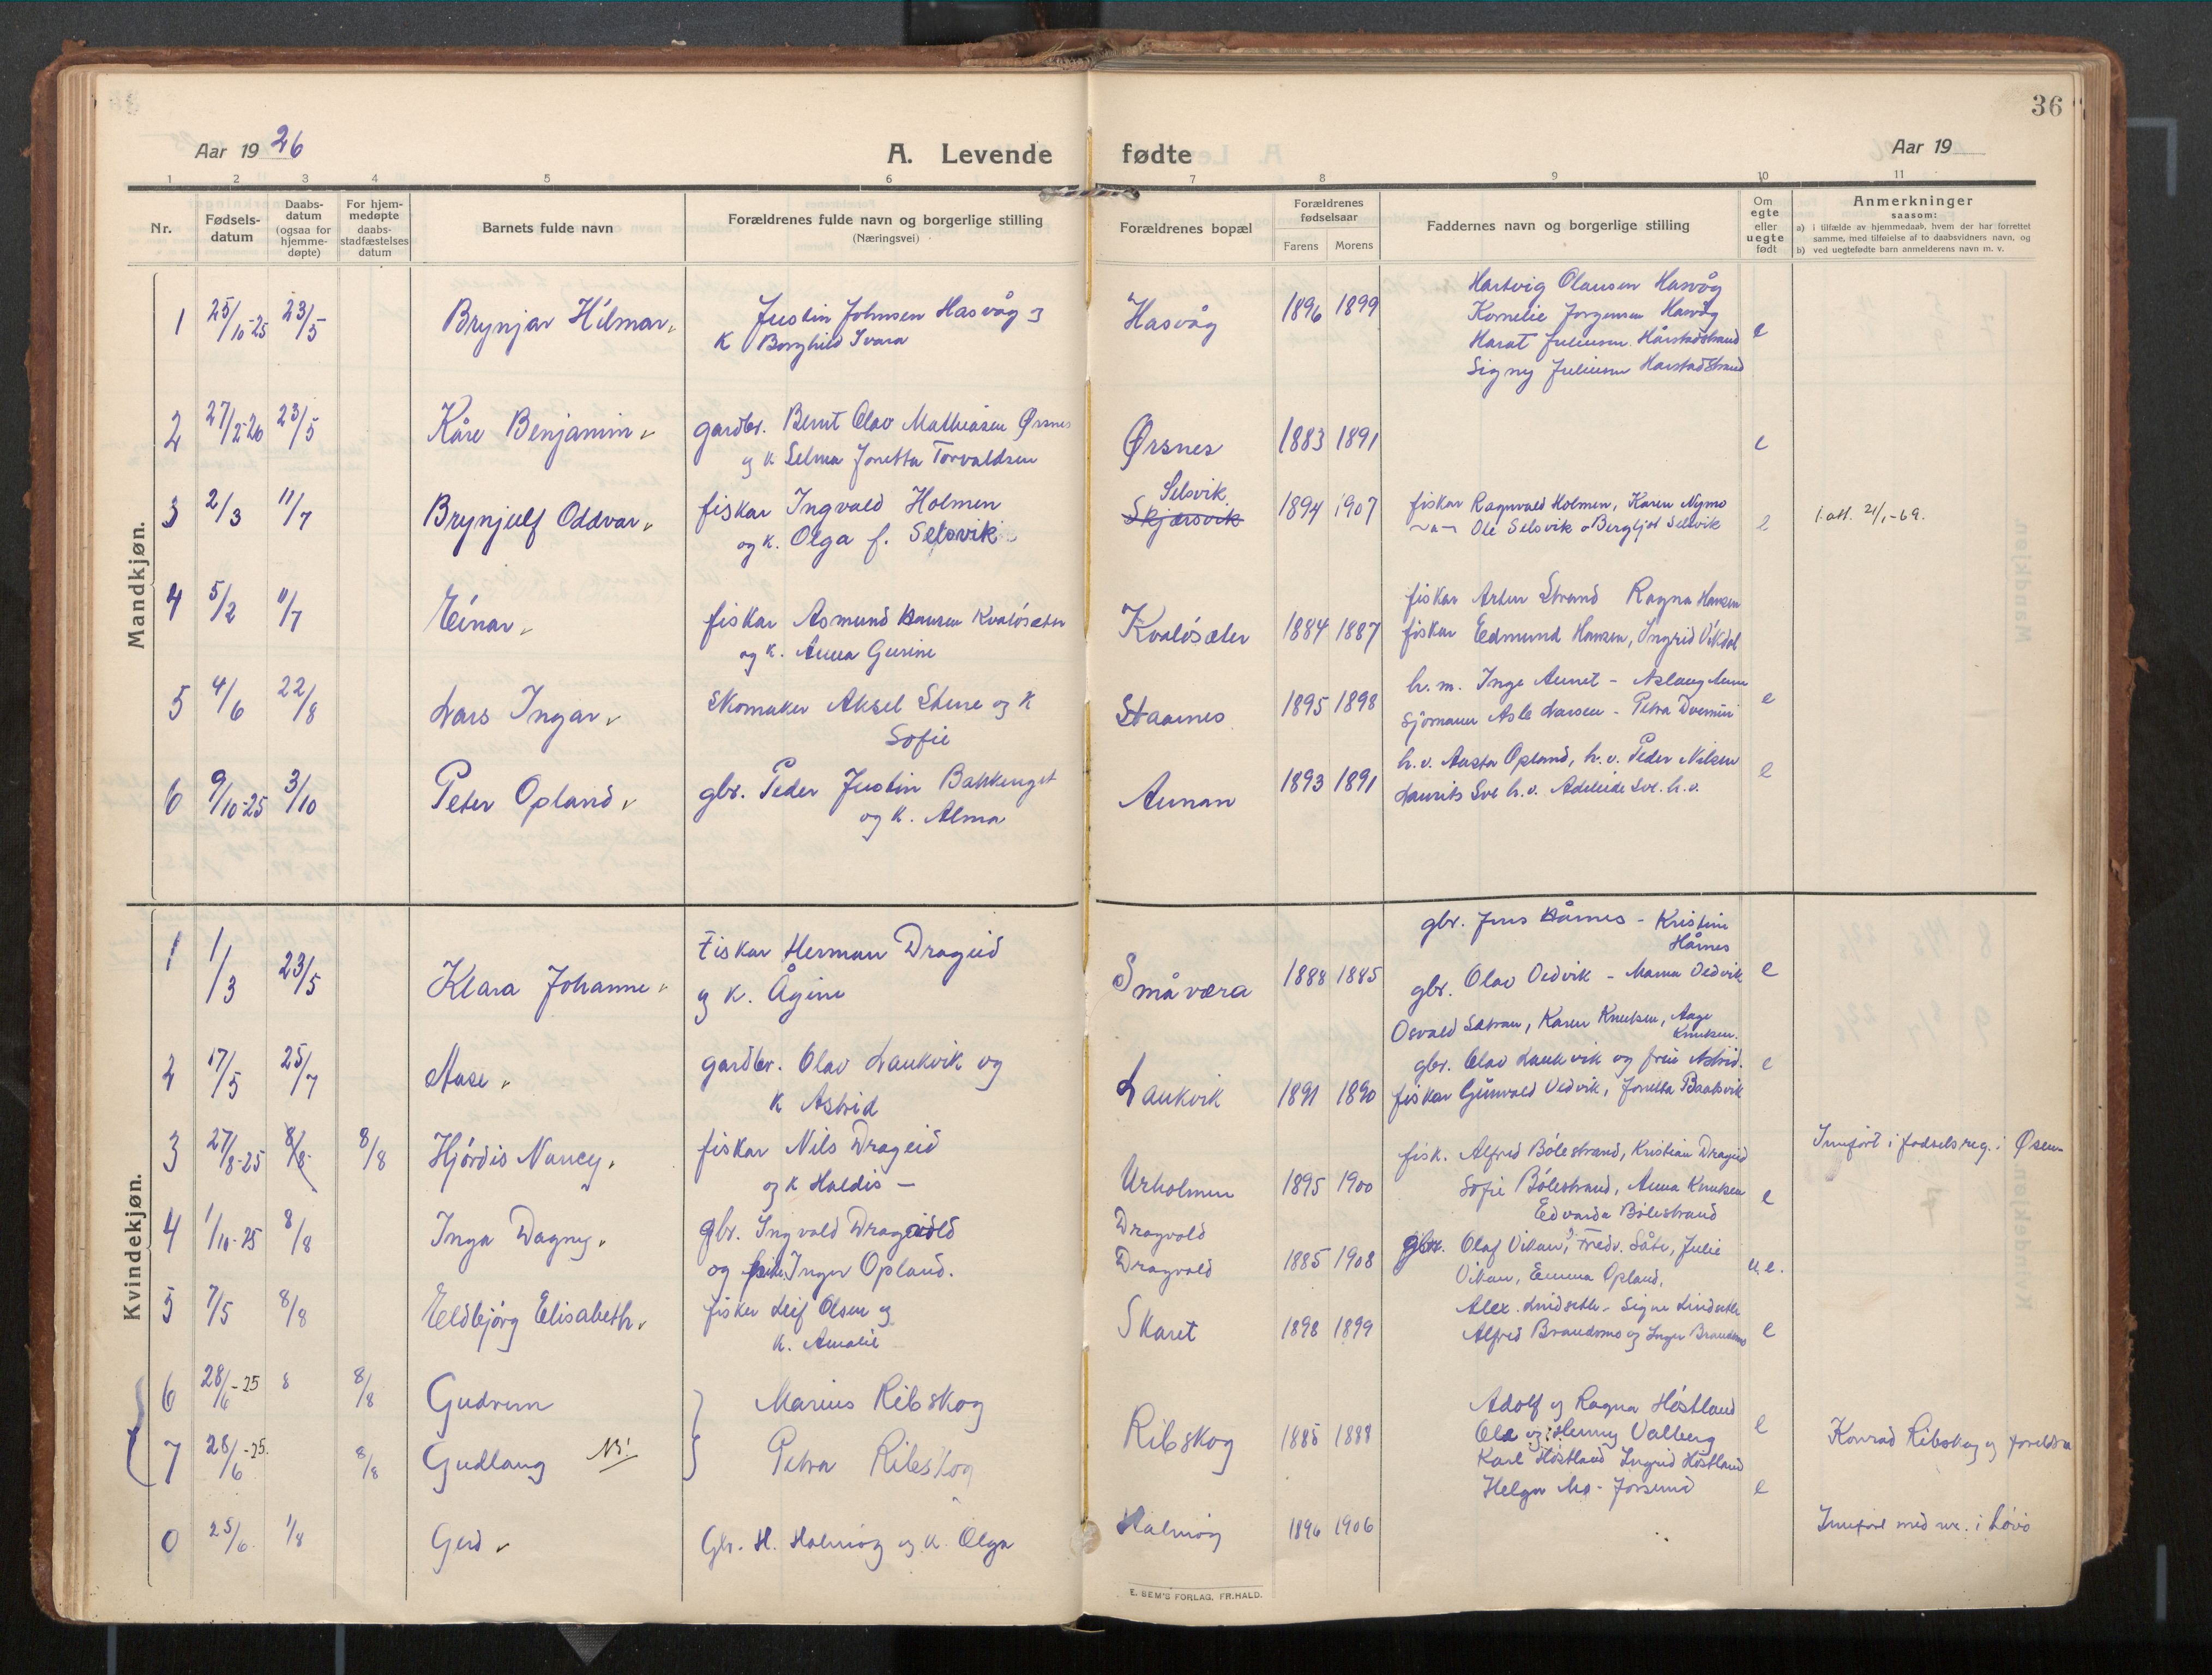 36
Aar 19 26
A. Levende fødte
Aar 19
1 2 3 4 5 6 7 8 9 10 11
Nr.
Fødsels-
datum
Daabs-
datum
(ogsaa for
hjemme-
døpte)
For hjem-
medøpte
daabs-
stadfæstelses
datum
Barnets fulde navn
Forældrenes fulde navn og borgerlige stilling
(Næringsvei)
Forældrenes bopæl
Forældrenes
fødselsaar
Farens Morens
Faddernes navn og borgerlige stilling
Om
egte
eller
uegte
født
Anmerkninger
saasom:
a) i tilfælde av hjemmedaab, hvem der har forrettet
samme, med tilføielse af to daabsvidners navn, og
b) ved uegtefødte barn anmelderens navn m. v.
Mandkjøn.
1 25/10-25 23/5 Brynjar Hilmar
Justin Johnsen Hasvåg
K Borghild Ivara
Hasvåg 1896 1899
Hartvig Olausen Hasvåg
Kornelie Jorgensen Hasvåg
Harat Juliusen Hårstadstrand
Signy Juliusen Harstadstrand
e
2 27/2-26 23/5 Kåre Benjamin
gardbr. Bernt Olav Mathiasen Ørsnes
og K Selma Jonetta Torvaldsen
Ørsnes 1883 1891 e
3 2/3 11/7 Brynjulf Oddvar
fiskar Ingvald Holmen
og K. Olga f. Selsvik
Selsvik
Skjærsvik 1894 1907
fiskar Ragnvald Holmen, Karen Nymo
Ole Selsvik o Bergljot Selsvik
e
1. att. 21/1-69.
4 5/2 11/7 Einar
fiskar Asmund Hansen Kvaløsæter
og K. Anna Gurine
Kvaløsæter 1884 1887
fiskar Artur Strand Ragna Hansen
fiskar Edmund Hansen, Ingrid Vikdal
5 4/6 22/8 Lars Ingar
Skomaker Aksel Stene og K
Sofie
Staarnes 1895 1898
h. m. Inge Aunet - Aslaug Aune
Sjömann Asle Larsen - Petra
e
6 9/10-25 3/10 Peter Opland
gbr. Peder Justin Bakkenget
og K. Alma
Aunan 1893 1891
h. v. Aasta Opland, h. v. Peder Nilsen
Laurits Sve h. v. Adeleide Sve. h. v.
e
Kvindekjøn.
1 1/3 23/5 Klara Johanne
Fiskar Herman Drageid
og K. Ågine
Småværa 1888 1885
gbr. Jens Hårnes - Kristine
Hårnes
gbr. Olav Vedvik - Marna Vedvik
Osvald Sætran, Karen Knutsen, Aage
Knutsen.
e
2 17/5 25/7 Aase
gardbr. Olav Laukvik og
K Astrid
Laukvik 1891 1890
gbr. Olav Laukvik og frue Astrid.
fiskar Gunvald Vedvik, Jonetta Baatsvik
e
3 27/8-25 8/8 8/8 Hjördis Nancy
fiskar Nils Drageid
og K Haldis —
Urholmen 1895 1900
fisk. Alfred Bölestrand, Kristian Drageid
Sofie Bölestrand, Anna Knutsen
Edvarda Bölestrand
e
Innfört i fødselsreg. i Øsen
4 1/10-25 8/8 Inga Dagny
gbr. Ingvald Dragvold
og Inger Opland.
Dragvold
Dragvold 1885 1908
gbr. Olaf Vikan, Fredr. Såte, Julie
Vikan, Emma Opland,
u.e.
5 7/5 8/8 Eldbjörg Elisabeth
fisker Leif Olsen og
K. Amalie
Skaret 1898 1899
Alex. Lindseth - Signe Lindseth
Alfred Brandsmo og Inger Brandsmo
e
6 28/6-25 8 8/8 Gudrun
7 28/6-25. 8/8 Gudlaug
Marius Ribskog
Petra Ribskog
Ribskog 1885 1888
Adolf og Ragna Höstland
Ola og Henny Valberg
Karl Höstland Ingrid Höstland
Helga Mo - Jorsund
e
e
Konrad Ribskog og foreldra
0 25/6. 1/8 Gerd
Gbr. H. Halmöy og K. Olga
Halmöy 1896 1906
Innfört med nr. i Lövö
E. SEM'S FORLAG, FR.HALD.